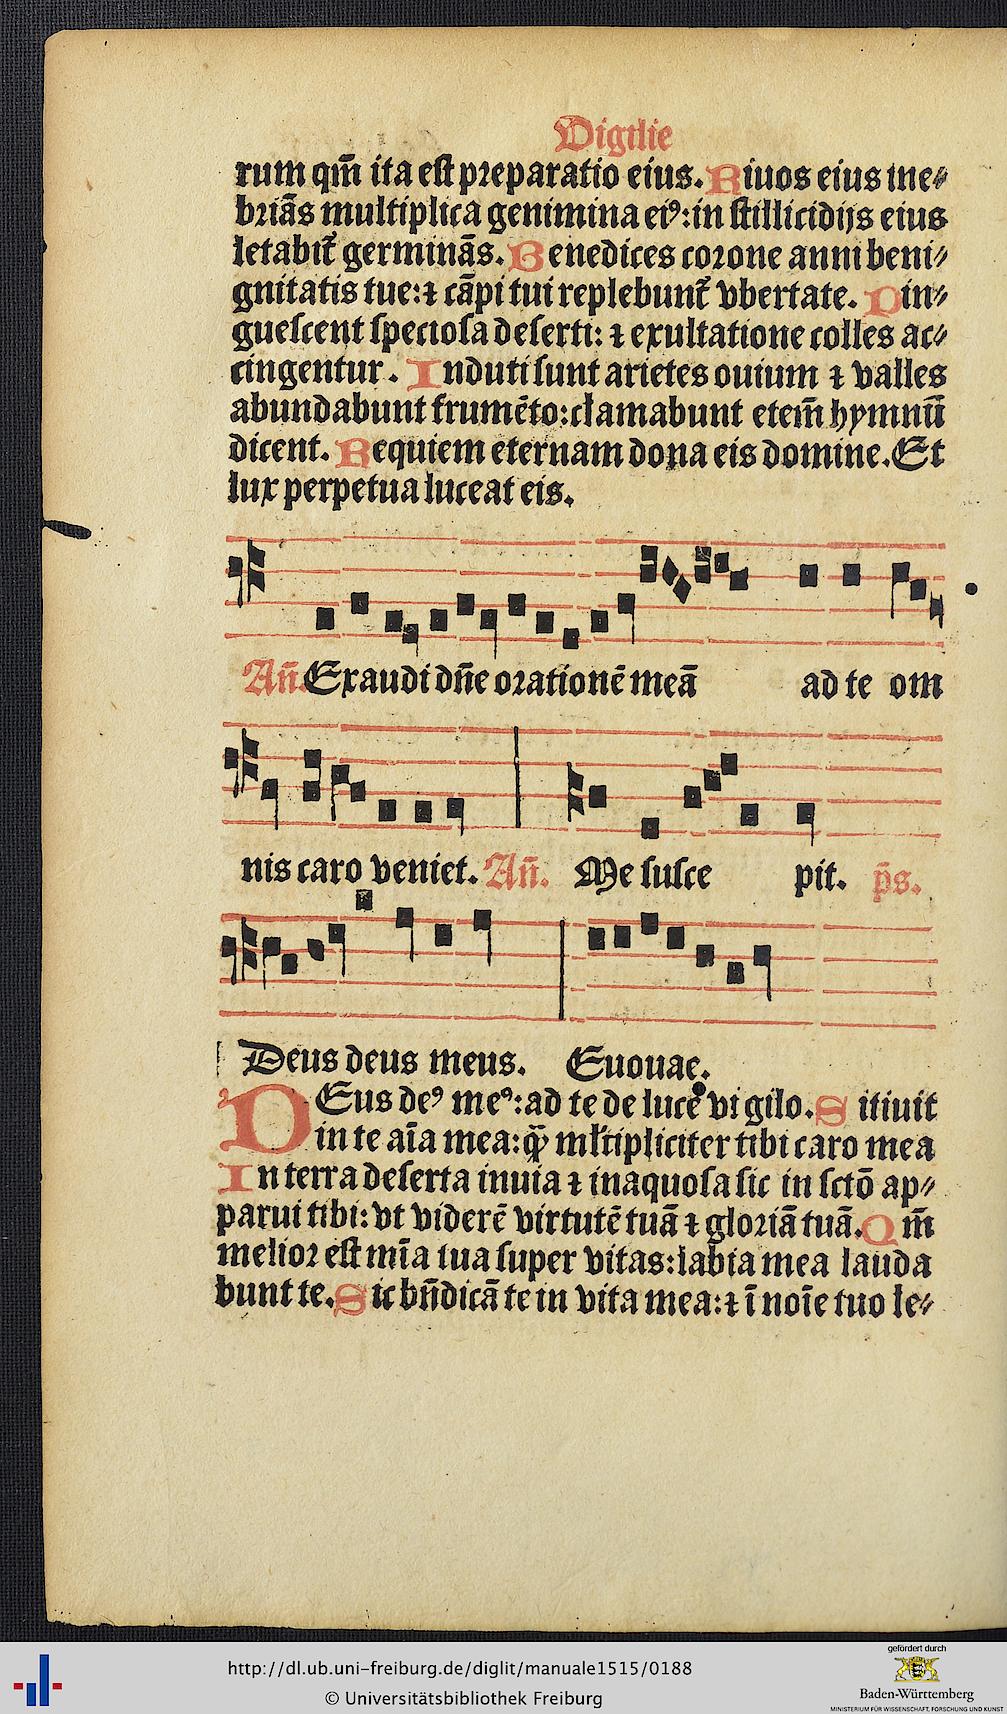 Vigilie
rum qm̄ ita est preparatio eius. Riuos eius ine⸗
briās multiplica genimina eiꝰ: in stillicidijs eius
letabit᷑ germinās. Benedices corone anni beni⸗
gnitatis tue: ⁊ cāpi tui replebunt᷑ vbertate. Pin⸗
guescent speciosa deserti: ⁊ exultatione colles ac⸗
cingentur. Induti sunt arietes ouium ⁊ valles
abundabunt frumēto: clamabunt etem̄ hymnū
dicent. Requiem eternam dona eis domine. Et
lux perpetua luceat eis.
An̄. Exaudi dn̄e orationē meā ad te om
nis caro veniet. An̄. Me susce pit. p̄s.
Deus deus meus. Euouae.
DEus deꝰ meꝰ: ad te de luce vigilo. Sitiuit
in te aīa mea: qꝫ̄ ml̄tipliciter tibi caro mea
In terra deserta inuia ⁊ inaquosa sic in sctō ap⸗
parui tibi: vt viderē virtutē tuā ⁊ gloriā tuā. Qm̄
melior est mīa tua super vitas: labia mea lauda
bunt te. Sic bn̄dicā te in vita mea: ⁊ ī noīe tuo le⸗
gefördert durch
http://dl.ub.uni-freiburg.de/diglit/manuale1515/0188
© Universitätsbibliothek Freiburg
Baden-Württemberg
MINISTERIUM FÜR WISSENSCHAFT, FORSCHUNG UND KUNST